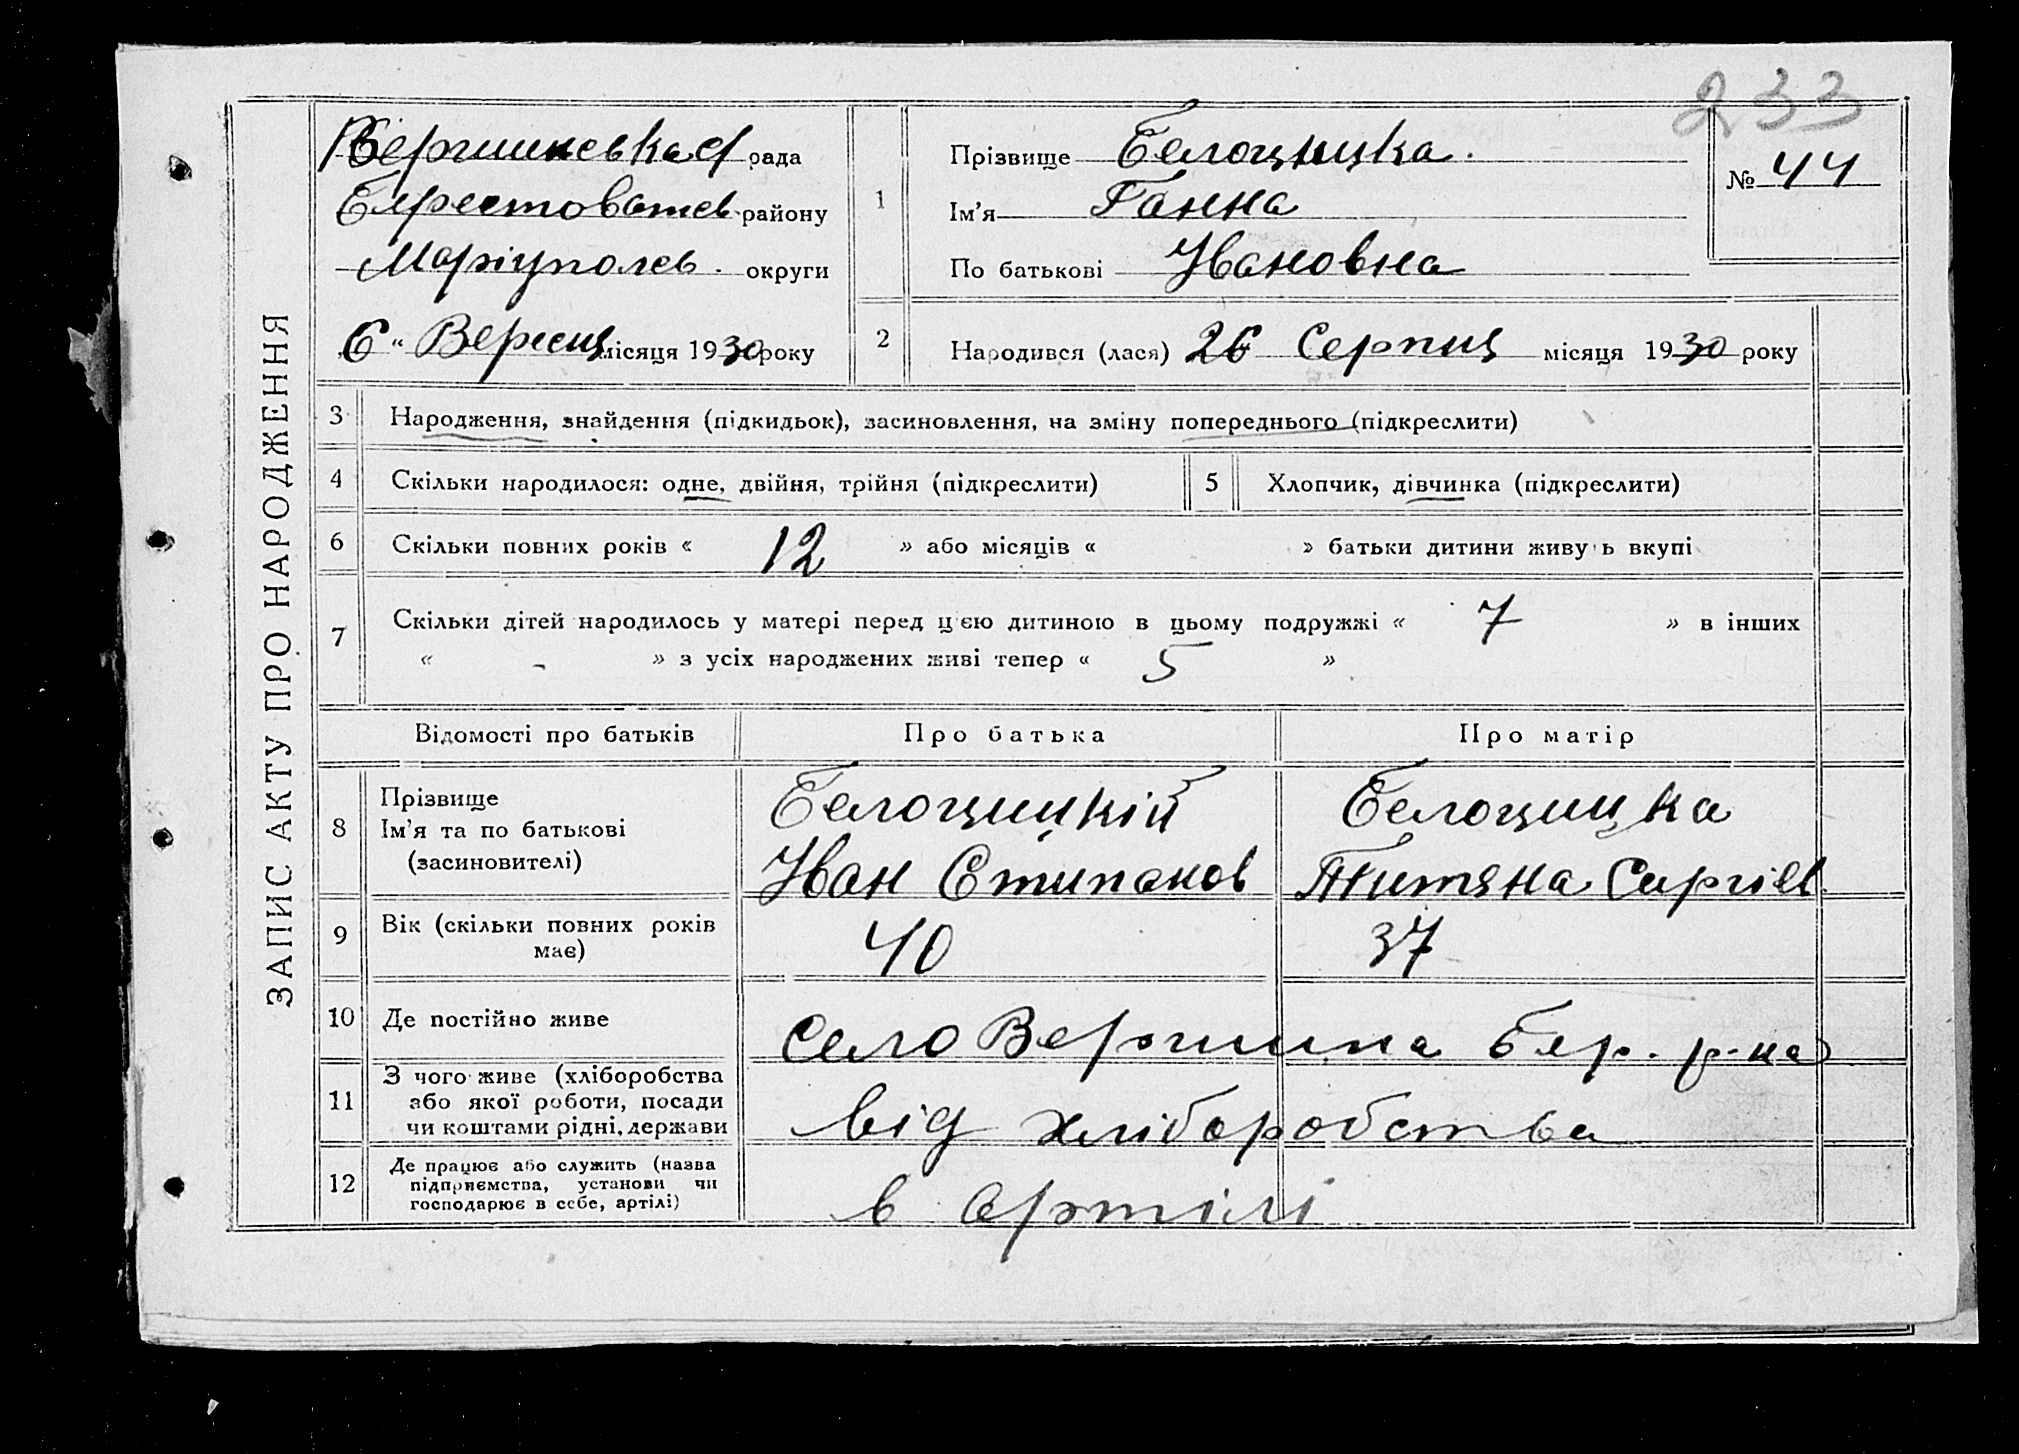 233
ЗАПИС АКТУ ПРО НАРОДЖЕННЯ
Вершинська рада
Берестоватсь. району
Маріупольсь. округи
„6“ Вересня місяця 1930 року
1
Прізвище Белоцицка.
Ім’я Ганна
По батькові Ивановна
№ 44
2
Народився (лася) 26 Серпня місяця 1930 року
3 Народження, знайдення (підкидьок), засиновлення, на зміну попереднього (підкреслити)
4 Скільки народилося: одне, двійня, трійня (підкреслити)
5 Хлопчик, дівчинка (підкреслити)
6 Скільки повних років « 12 » або місяців « » батьки дитини живуть вкупі
7 Скільки дітей народилось у матері перед цією дитиною в цьому подружжі « 7 » в інших
« - » з усіх народжених живі тепер « 5 »
Відомості про батьків Про батька Про матір
8 Прізвище
Ім’я та по батькові
(засиновителі)
Белоцицкій
Иван Стипанов
Белоцицка
Титяна Сиргіев
9 Вік (скільки повних років має)
40 37
10 Де постійно живе
село Вершина Бер. р-на
11 З чого живе (хліборобства
або якої роботи, посади
чи коштами рідні, держави
від хліборобства
12 Де працює або служить (назва
підприємства, установи чи
господарює в себе, артілі)
в артілі